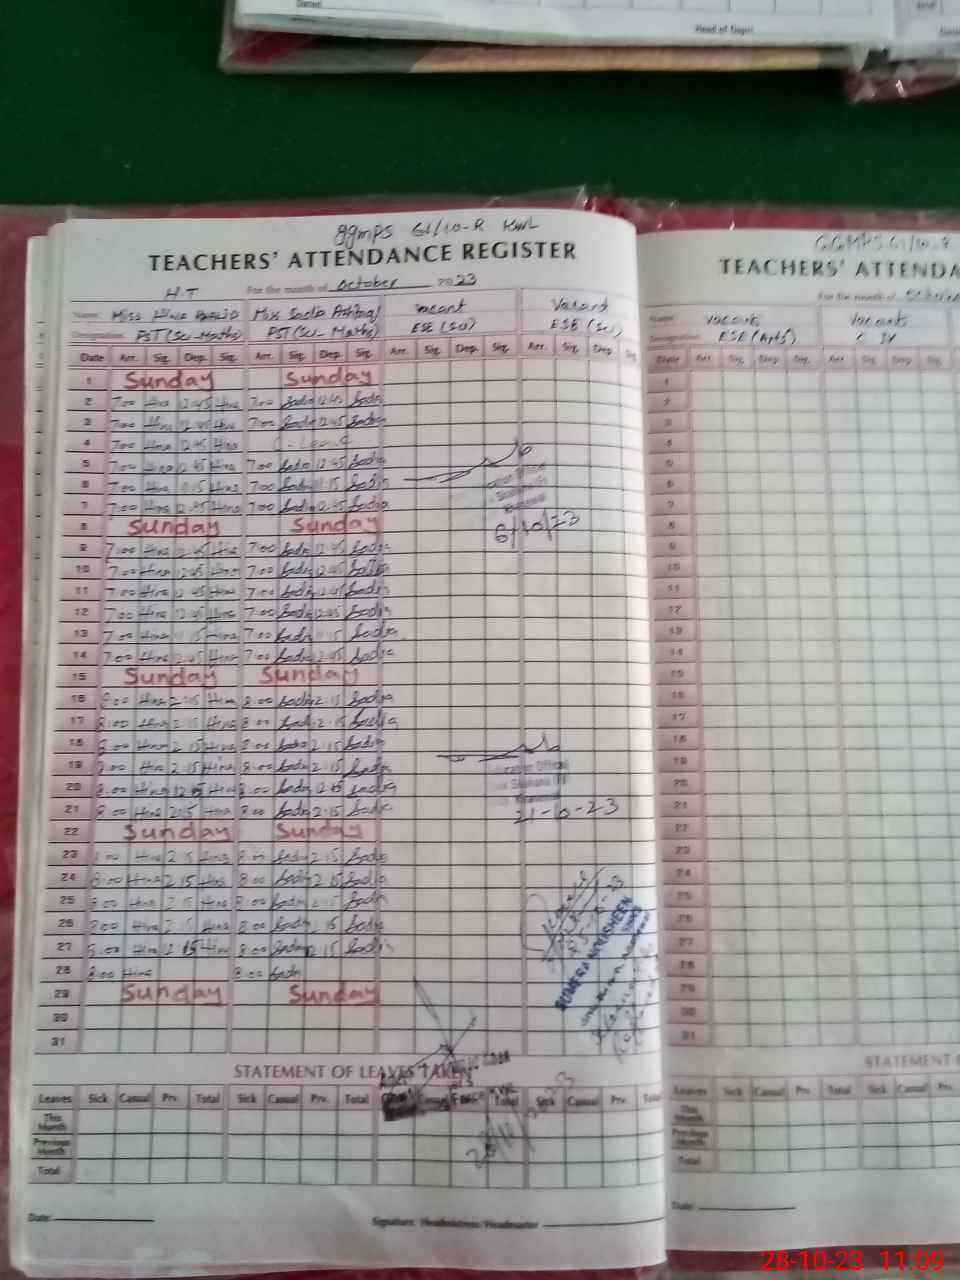 Dated
Head of Deptt
GGMPS 61/10-R KWL
TEACHERS' ATTENDANCE REGISTER
H.T For the month of October 2023
Name: Miss Hina Miss Sadia Ashfaq Vacant Vacant
Designation: PST (Sci-Maths) PST (Sci-Maths) ESE (Sci) ESE (Sci)
Date Arr. Sig. Dep. Sig. Arr. Sig. Dep. Sig. Arr. Sig. Dep. Sig. Arr. Sig. Dep. Sig.
1 Sunday Sunday
2 7:00 Hina 12:45 Hina 7:00 Sadia 12:45 Sadia
3 7:00 Hina 12:45 Hina 7:00 Sadia 12:45 Sadia
4 7:00 Hina 12:45 Hina C-Leave
5 7:00 Hina 12:45 Hina 7:00 Sadia 12:45 Sadia
6 7:00 Hina 11:15 Hina 7:00 Sadia 11:15 Sadia
7 7:00 Hina 12:45 Hina 7:00 Sadia 12:45 Sadia
8 Sunday Sunday
6/10/23
9 7:00 Hina 12:45 Hina 7:00 Sadia 12:45 Sadia
10 7:00 Hina 12:45 Hina 7:00 Sadia 12:45 Sadia
11 7:00 Hina 12:45 Hina 7:00 Sadia 12:45 Sadia
12 7:00 Hina 12:45 Hina 7:00 Sadia 12:45 Sadia
13 7:00 Hina 11:15 Hina 7:00 Sadia 11:15 Sadia
14 7:00 Hina 12:45 Hina 7:00 Sadia 12:45 Sadia
15 Sunday Sunday
16 8:00 Hina 2:15 Hina 8:00 Sadia 2:15 Sadia
17 8:00 Hina 2:15 Hina 8:00 Sadia 2:15 Sadia
18 8:00 Hina 2:15 Hina 8:00 Sadia 2:15 Sadia
19 8:00 Hina 2:15 Hina 8:00 Sadia 2:15 Sadia
20 8:00 Hina 12:45 Hina 8:00 Sadia 12:45 Sadia
21 8:00 Hina 2:15 Hina 8:00 Sadia 2:15 Sadia
Education Officer
21-10-23
22 Sunday Sunday
23 8:00 Hina 2:15 Hina 8:00 Sadia 2:15 Sadia
24 8:00 Hina 2:15 Hina 8:00 Sadia 2:15 Sadia
25 8:00 Hina 2:15 Hina 8:00 Sadia 2:15 Sadia
26 8:00 Hina 2:15 Hina 8:00 Sadia 2:15 Sadia
27 8:00 Hina 12:15 Hina 8:00 Sadia 12:15 Sadia
28 8:00 Hina 8:00 Sadia
SUMERA NOUSHEEN
29 Sunday Sunday
30
31
STATEMENT OF LEAVES TAKEN
Leaves Sick Casual Prv. Total Sick Casual Prv. Total Casual Total Sick Casual Prv. Total
This Month
Previous Month
Total
Date: Signature: Headmistress/Headmaster
GGMPS 61/10-R
TEACHERS' ATTENDA
For the month of October
Name: Vacant Vacant
Designation: ESE (Arts) C IV
Date Arr. Sig. Dep. Sig. Arr. Sig. Dep. Sig.
1
2
3
4
5
6
7
8
9
10
11
12
13
14
15
16
17
18
19
20
21
22
23
24
25
26
27
28
29
30
31
STATEMENT
Leaves Sick Casual Prv. Total Sick Casual
This Month
Previous Month
Total
Date:
28-10-23 11:09